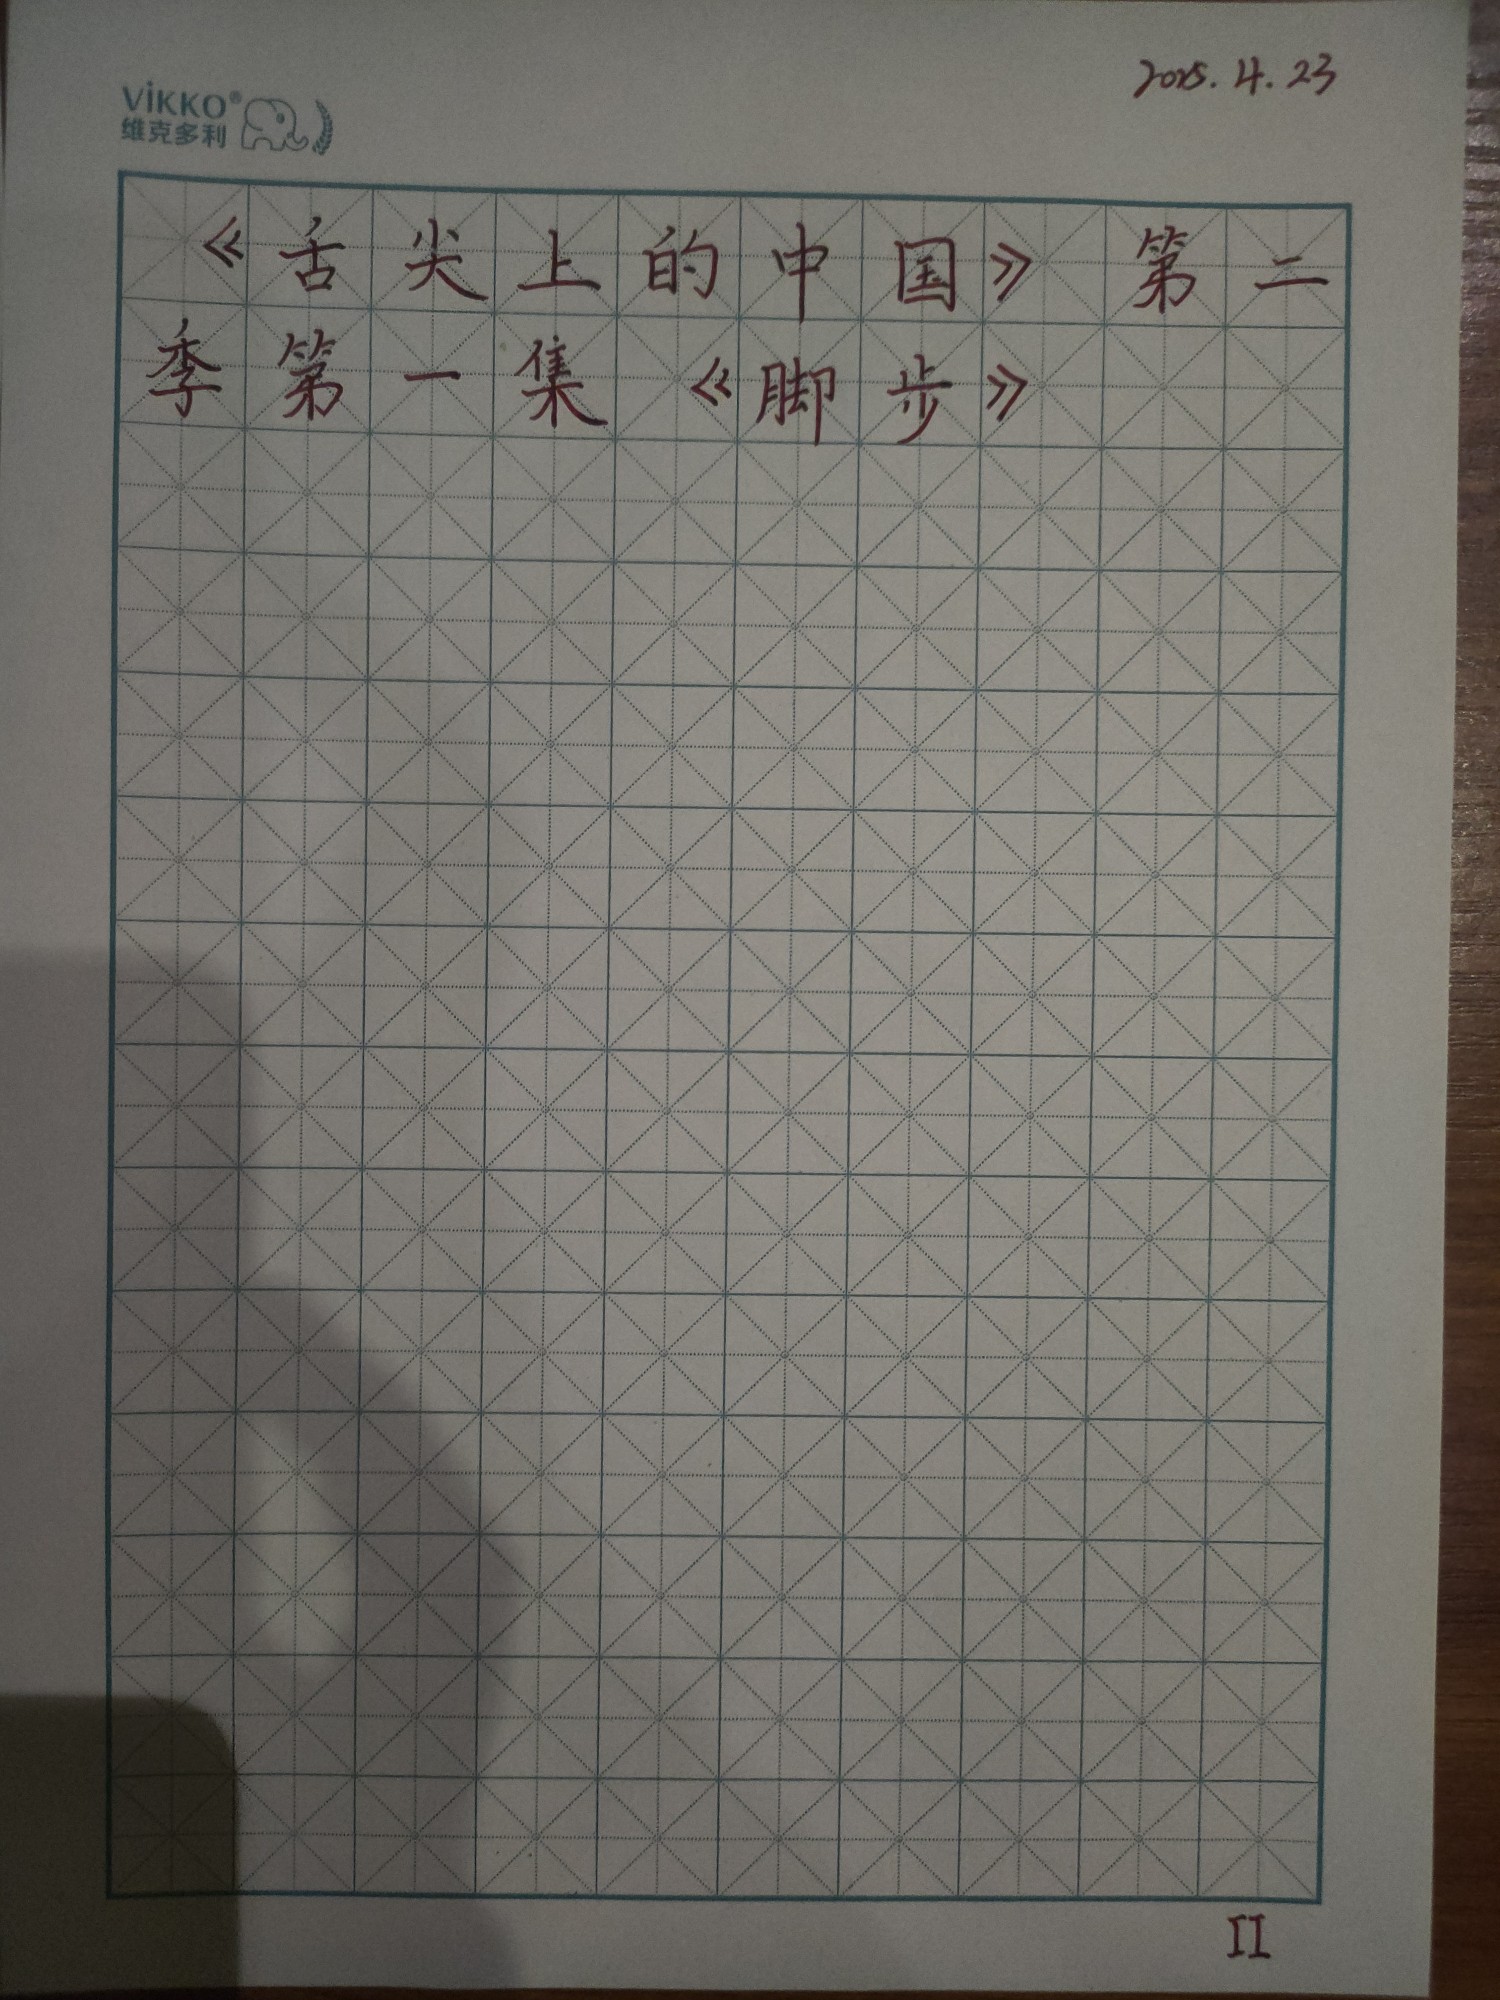 2025.4.23
VIKKO®
维克多利
《舌尖上的中国》第二
季第一集《脚步》
II